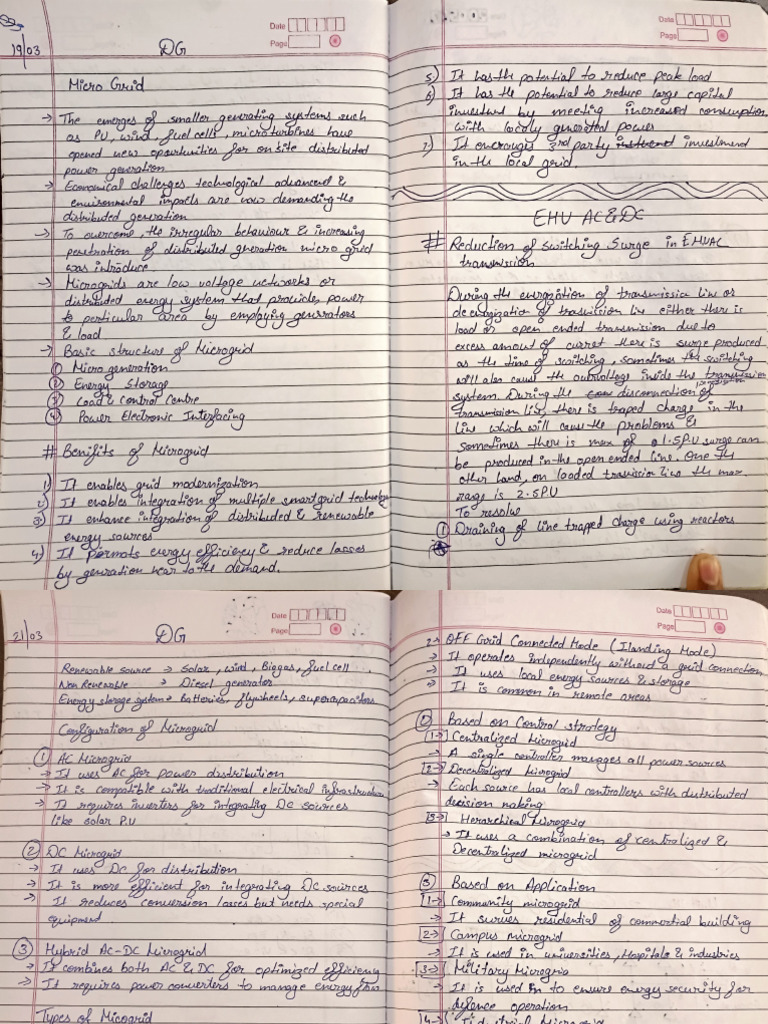 19/03
DG
Date
Page
Micro Grid
→ The emerges of smaller generating systems such
as PV, wind, fuel cells, microturbines have
opened new oportunities for onsite distributed
power generation
→ Economical challenges technological advanced &
environmental impacts are now demanding the
distributed generation
→ To overcome, the irregular behaviour & increasing
penetration of distributed generation micro grid
was introduce.
→ Microgrids are low voltage networks or
distributed energy system that provides power
to particular area by employing generators
& load.
→ Basic structure of Microgrid
① Micro generation
② Energy Storage
③ Load & Control Centre
④ Power Electronic Interfacing
# Benifits of Microgrid
1) It enables grid modernization
2) It enables integration of multiple smartgrid technology
3) It enhance integration of distributed & renewable
energy sources
4) It permots energy efficiency & reduce losses
by generation near to the demand.
Date
Page
5) It has the potential to reduce peak load
6) It has the potential to reduce large capital
investment by meeting increased consumption
with localy generated power
7) It encourages 3rd party investment
in the local grid.
EHV AC & DC
# Reduction of Switching Surge in EHVAC
transmission
During the energization of transmission line or
deenergization of transmission line either there is
load or open ended transmission due to
excess amount of current there is surge produced
as the time of switching, sometimes the switching
will also cause the overvoltage inside the transmission
system. During the disconnection of
transmission line, there is traped charge in the
line which will cause the problems &
sometimes there is max of a 1.5 P.U surge can
be produced in the open ended line. One the
other hand, on loaded transmission line the max
range is 2.5 P.U
To resolve
① Draining of line traped charge using reactors
21/03
DG
Date
Page
Renewable source → Solar, wind, Biogas, fuel cell
Non Renewable → Diesel generator
Energy storage system → Batteries, flywheels, supercapacitors
Configuration of Microgrid
① AC Microgrid
→ It uses AC for power distribution
→ It is compatible with traditional electrical infrastructure
→ It requires inverters for integrating DC sources
like solar P.V
② DC Microgrid
→ It uses DC for distribution
→ It is more efficient for integrating DC sources
→ It reduces conversion losses but needs special
equipment
③ Hybrid AC-DC Microgrid
→ It combines both AC & DC for optimized efficiency
→ It requires power converters to manage energy flow
Types of Microgrid
Date
Page
2→ OFF Grid Connected Mode (Ilanding Mode)
→ It operates independently without a grid connection
→ It uses local energy sources & storage
→ It is common in remote areas
Based on Control strategy
1→ Centralized Microgrid
→ A single controller manages all power sources
2→ Decentralized Microgrid
→ Each source has local controllers with distributed
decision making
3→ Herarchical Microgrid
→ It uses a combination of centralized &
Decentralized microgrid
③ Based on Application
1→ Community microgrid
→ It surves residential of commertial building
2→ Campus microgrid
→ It is used in universities, Hospitals & industries
3→ Military Microgrid
→ It is used to ensure energy security for
defence operation
4→ Industrial Microgrid